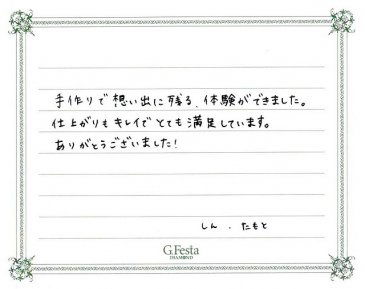 手作りで想い出に残る、体験ができました。
仕上がりもキレイでとても満足しています。
ありがとうございました!
しん . たもと
G.Festa
DIAMOND